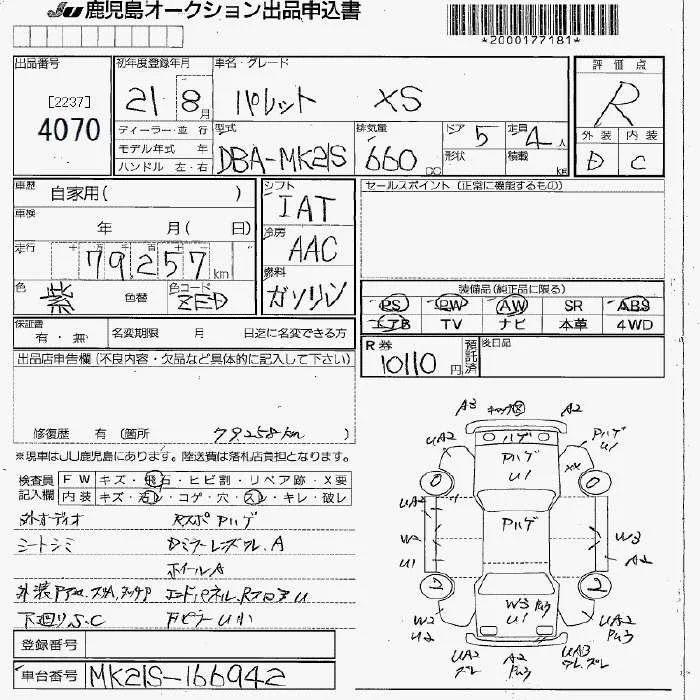 JU 鹿児島オークション出品申込書
*2000177181*
出品番号
[2237]
4070
初年度登録年月
21 8月
車名・グレード
パレット XS
評価点
R
外装 内装
D C
ディーラー・並行
モデル年式 年
ハンドル 左・右
型式
DBA-MK21S
排気量
660 cc
ドア 5
形状
定員 4人
積載 kg
車歴
自家用( )
車検
年 月( 日)
走行
79,257km
色
紫
色替
色コード
ZED
シフト
IAT
冷房
AAC
燃料
ガソリン
セールスポイント (正常に機能するもの)
装備品(純正品に限る)
PS PW AW SR ABS
エアB TV ナビ 本革 4WD
保証書
有・無
名変期限 月 日迄に名変できる方
R券
10110円
預託済
後日品
出品店申告欄(不良内容・欠品など具体的に記入して下さい)
修復歴 有 (箇所 79258km )
※現車はJU鹿児島にあります。陸送費は落札店負担となります。
検査員記入欄
FW キズ・飛石・ヒビ割・リペア跡・X要
内装 キズ・汚レ・コゲ・穴・スレ・キレ・破レ
外オーディオ
シートシミ
ホイールA
下廻りS.C
登録番号
車台番号 MK21S-166942
A3 A2
ハゲ
UA2
Pハゲ
U1
Pハゲ
U1
XX
0 0
Pハゲ
UA2
W2
U1
W3
A2
2 2
W3
U1
W2
U2
UA2
UA2
A2
UA3